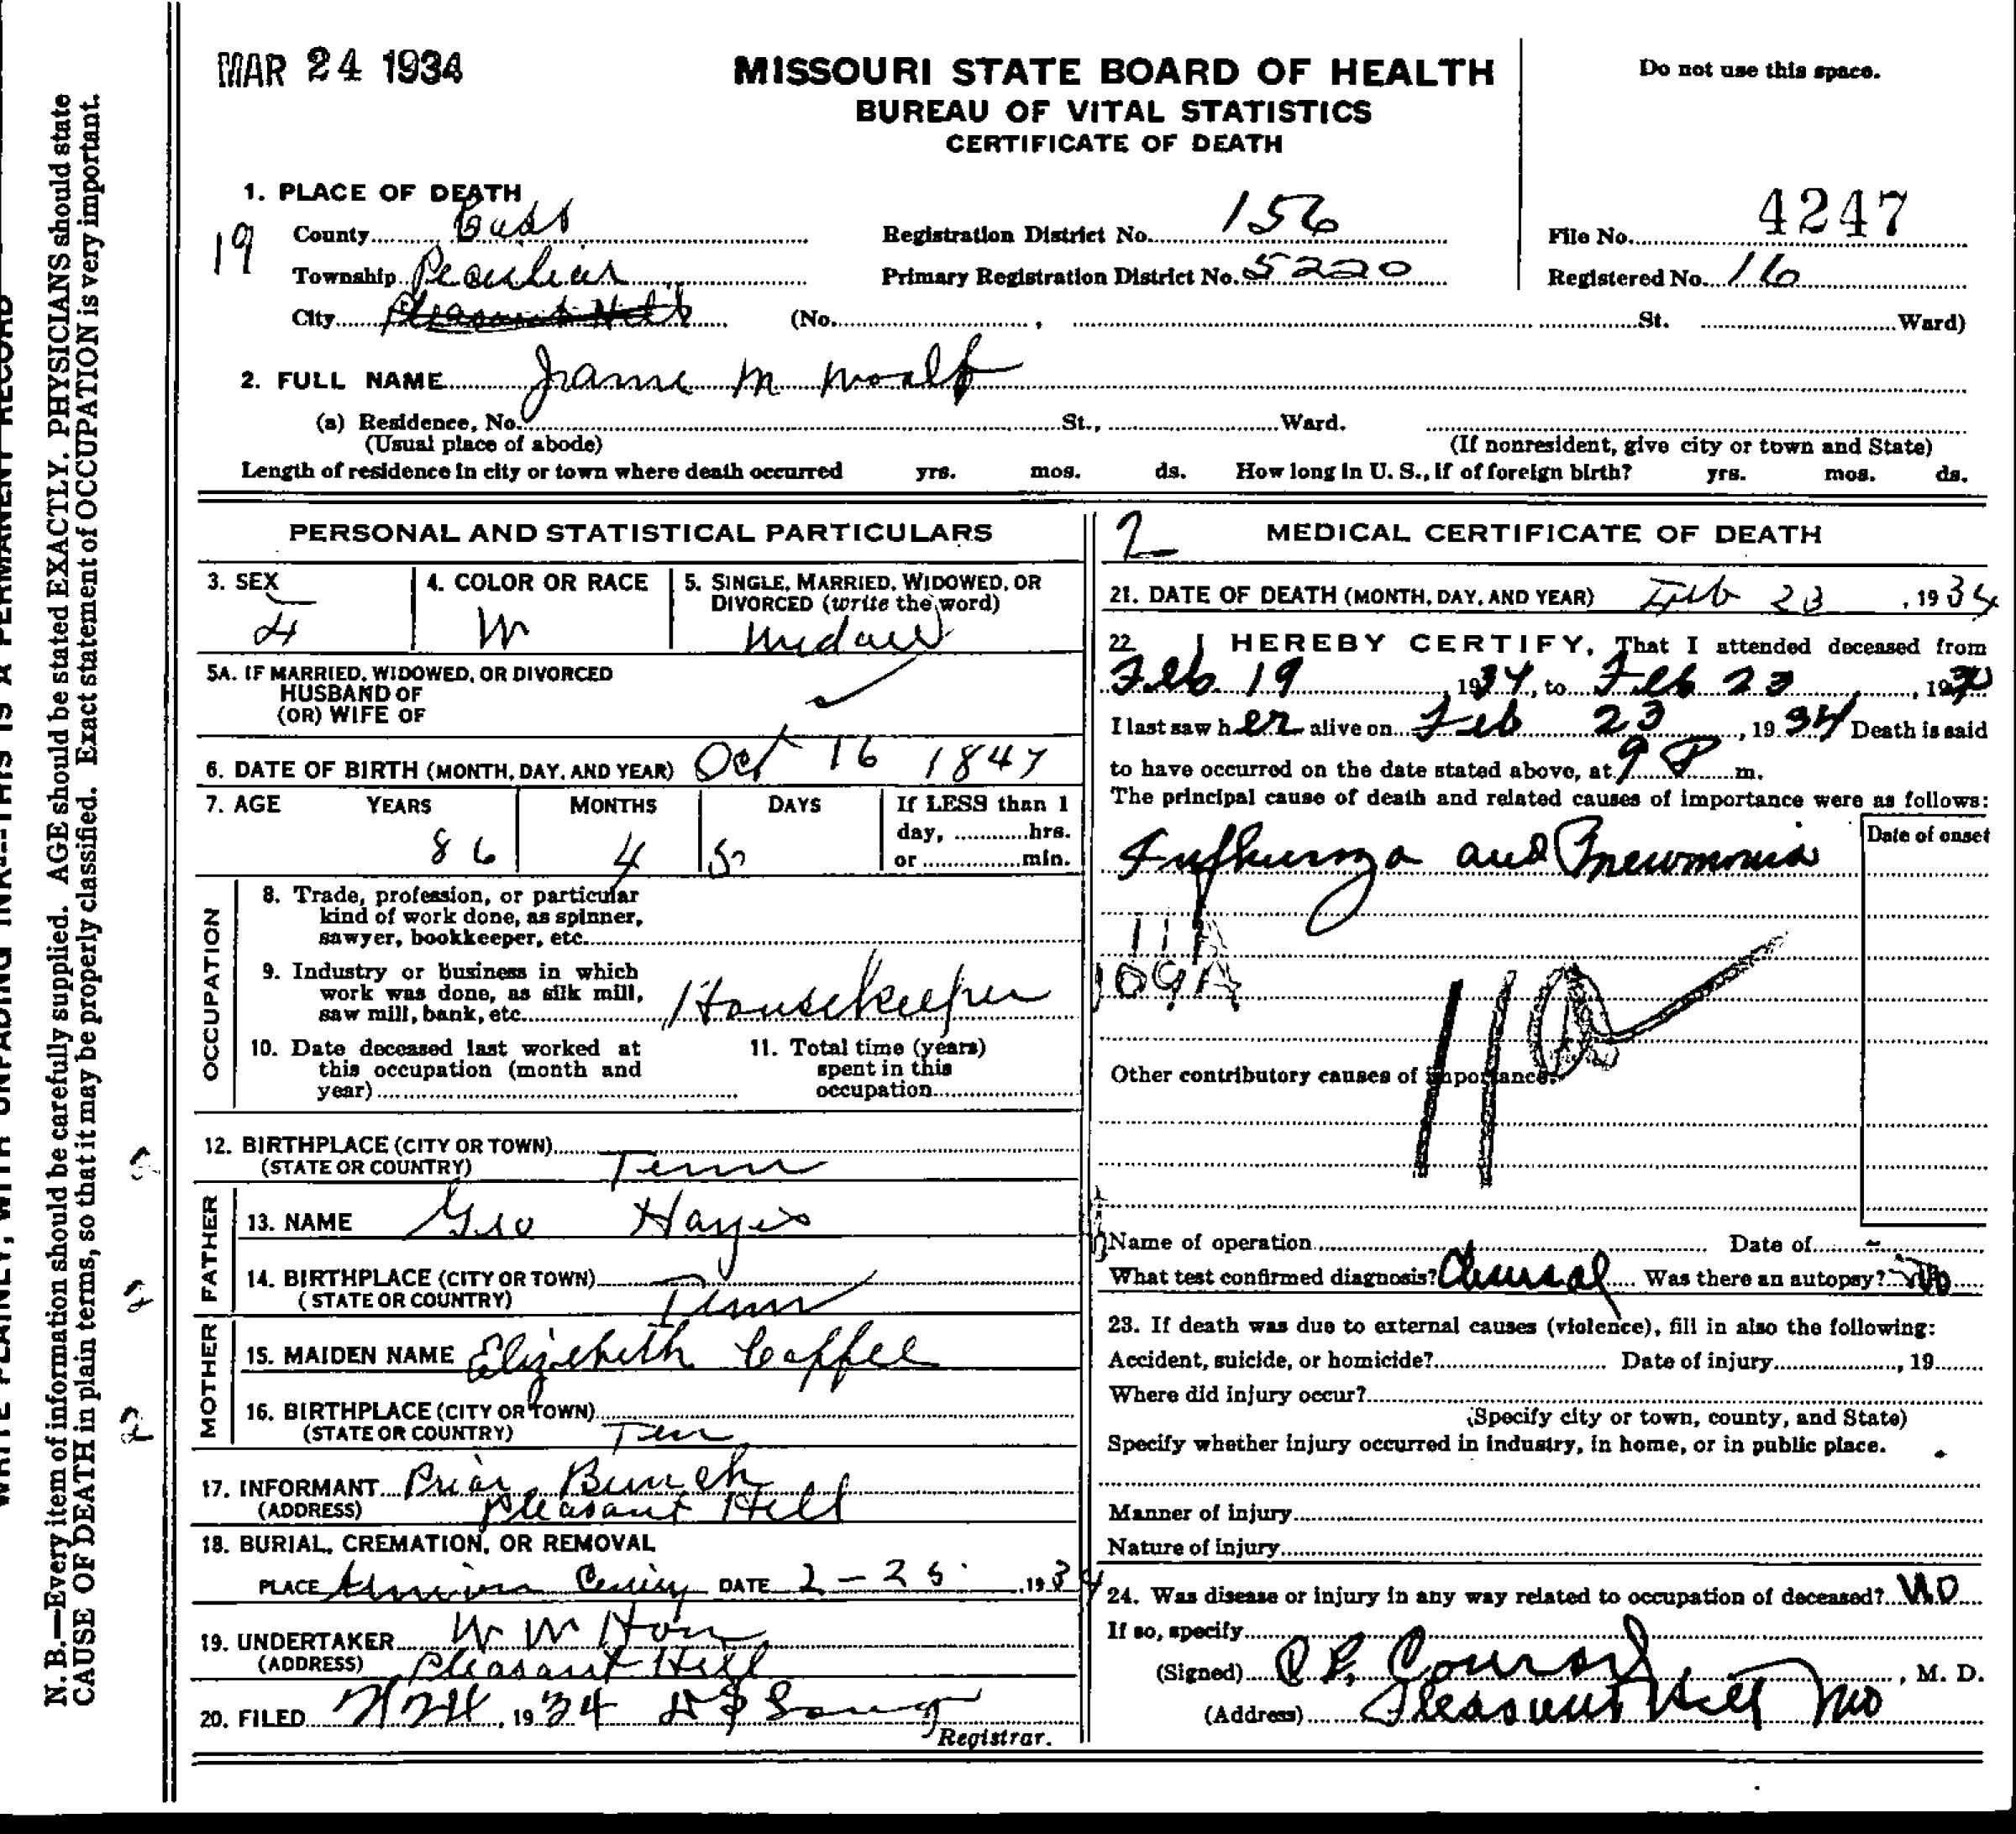 MAR 24 1934
MISSOURI STATE BOARD OF HEALTH
BUREAU OF VITAL STATISTICS
CERTIFICATE OF DEATH
Do not use this space.
1. PLACE OF DEATH
19
County Cass
Registration District No. 156
File No. 4247
Township Peculiar
Primary Registration District No. 5220
Registered No. 16
City Pleasant Hill (No. , St. Ward)
2. FULL NAME M
(a) Residence, No. St., Ward.
(Usual place of abode) (If nonresident, give city or town and State)
Length of residence in city or town where death occurred yrs. mos. ds. How long in U. S., if of foreign birth? yrs. mos. ds.
PERSONAL AND STATISTICAL PARTICULARS
3. SEX
4. COLOR OR RACE W
5. SINGLE, MARRIED, WIDOWED, OR
DIVORCED (write the word)
Widow
5A. IF MARRIED, WIDOWED, OR DIVORCED
HUSBAND OF
(OR) WIFE OF
6. DATE OF BIRTH (MONTH, DAY, AND YEAR) Oct 16 1847
7. AGE YEARS MONTHS DAYS If LESS than 1
day, hrs.
or min.
86 4
OCCUPATION
8. Trade, profession, or particular
kind of work done, as spinner,
sawyer, bookkeeper, etc.
9. Industry or business in which
work was done, as silk mill,
saw mill, bank, etc. Housekeeper
10. Date deceased last worked at
this occupation (month and
year)
11. Total time (years)
spent in this
occupation
12. BIRTHPLACE (CITY OR TOWN)
(STATE OR COUNTRY) Tenn
FATHER
13. NAME Geo Hayes
14. BIRTHPLACE (CITY OR TOWN)
(STATE OR COUNTRY) Tenn
MOTHER
15. MAIDEN NAME Elizebeth Caffee
16. BIRTHPLACE (CITY OR TOWN)
(STATE OR COUNTRY) Ten
17. INFORMANT Briar Bunch
(ADDRESS) Pleasant Hill
18. BURIAL, CREMATION, OR REMOVAL
PLACE DATE 2-25 1934
19. UNDERTAKER W W Hon
(ADDRESS) Pleasant Hill
20. FILED , 1934
Registrar.
2
MEDICAL CERTIFICATE OF DEATH
21. DATE OF DEATH (MONTH, DAY, AND YEAR) Feb 23, 1934
22. I HEREBY CERTIFY, That I attended deceased from
Feb 19, 1934, to Feb 23, 19
I last saw her alive on Feb 23, 1934 Death is said
to have occurred on the date stated above, at 9 P m.
The principal cause of death and related causes of importance were as follows:
Date of onset
Influenza and Pneumonia
11A
109A
11a
Other contributory causes of importance:
Name of operation Date of
What test confirmed diagnosis? Was there an autopsy? No
23. If death was due to external causes (violence), fill in also the following:
Accident, suicide, or homicide? Date of injury , 19
Where did injury occur?
(Specify city or town, county, and State)
Specify whether injury occurred in industry, in home, or in public place.
Manner of injury
Nature of injury
24. Was disease or injury in any way related to occupation of deceased? No
If so, specify
(Signed) , M. D.
(Address) Pleasant Hill Mo
N. B.—Every item of information should be carefully supplied. AGE should be stated EXACTLY. PHYSICIANS should state
CAUSE OF DEATH in plain terms, so that it may be properly classified. Exact statement of OCCUPATION is very important.